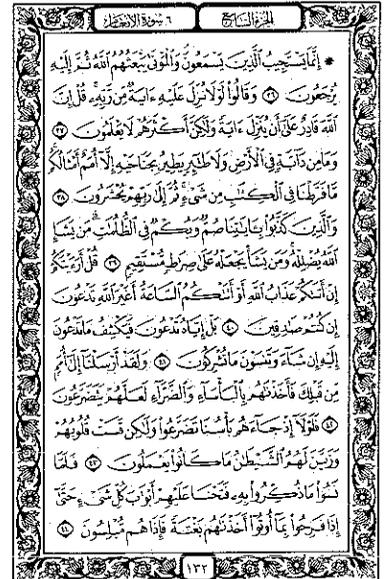 الجزء السابع
٦ سورة الأنعام
* إِنَّمَا يَسْتَجِيبُ الَّذِينَ يَسْمَعُونَ وَالْمَوْتَىٰ يَبْعَثُهُمُ اللَّهُ ثُمَّ إِلَيْهِ
يُرْجَعُونَ ٣٦ وَقَالُوا لَوْلَا نُزِّلَ عَلَيْهِ ءَايَةٌ مِّن رَّبِّهِۦ قُلْ إِنَّ
اللَّهَ قَادِرٌ عَلَىٰ أَن يُنَزِّلَ ءَايَةً وَلَٰكِنَّ أَكْثَرَهُمْ لَا يَعْلَمُونَ ٣٧
وَمَا مِن دَآبَّةٍ فِي الْأَرْضِ وَلَا طَٰٓئِرٍ يَطِيرُ بِجَنَاحَيْهِ إِلَّآ أُمَمٌ أَمْثَالُكُم
مَّا فَرَّطْنَا فِي الْكِتَٰبِ مِن شَيْءٍ ثُمَّ إِلَىٰ رَبِّهِمْ يُحْشَرُونَ ٣٨
وَالَّذِينَ كَذَّبُوا بِـَٔايَٰتِنَا صُمٌّ وَبُكْمٌ فِي الظُّلُمَٰتِ مَن يَشَإِ
اللَّهُ يُضْلِلْهُ وَمَن يَشَأْ يَجْعَلْهُ عَلَىٰ صِرَٰطٍ مُّسْتَقِيمٍ ٣٩ قُلْ أَرَءَيْتَكُمْ
إِنْ أَتَىٰكُمْ عَذَابُ اللَّهِ أَوْ أَتَتْكُمُ السَّاعَةُ أَغَيْرَ اللَّهِ تَدْعُونَ
إِن كُنتُمْ صَٰدِقِينَ ٤٠ بَلْ إِيَّاهُ تَدْعُونَ فَيَكْشِفُ مَا تَدْعُونَ
إِلَيْهِ إِن شَآءَ وَتَنسَوْنَ مَا تُشْرِكُونَ ٤١ وَلَقَدْ أَرْسَلْنَآ إِلَىٰٓ أُمَمٍ
مِّن قَبْلِكَ فَأَخَذْنَٰهُم بِالْبَأْسَآءِ وَالضَّرَّآءِ لَعَلَّهُمْ يَتَضَرَّعُونَ
٤٢ فَلَوْلَآ إِذْ جَآءَهُم بَأْسُنَا تَضَرَّعُوا وَلَٰكِن قَسَتْ قُلُوبُهُمْ
وَزَيَّنَ لَهُمُ الشَّيْطَٰنُ مَا كَانُوا يَعْمَلُونَ ٤٣ فَلَمَّا
نَسُوا مَا ذُكِّرُوا بِهِۦ فَتَحْنَا عَلَيْهِمْ أَبْوَٰبَ كُلِّ شَيْءٍ حَتَّىٰٓ
إِذَا فَرِحُوا بِمَآ أُوتُوٓا أَخَذْنَٰهُم بَغْتَةً فَإِذَا هُم مُّبْلِسُونَ ٤٤
١٣٢